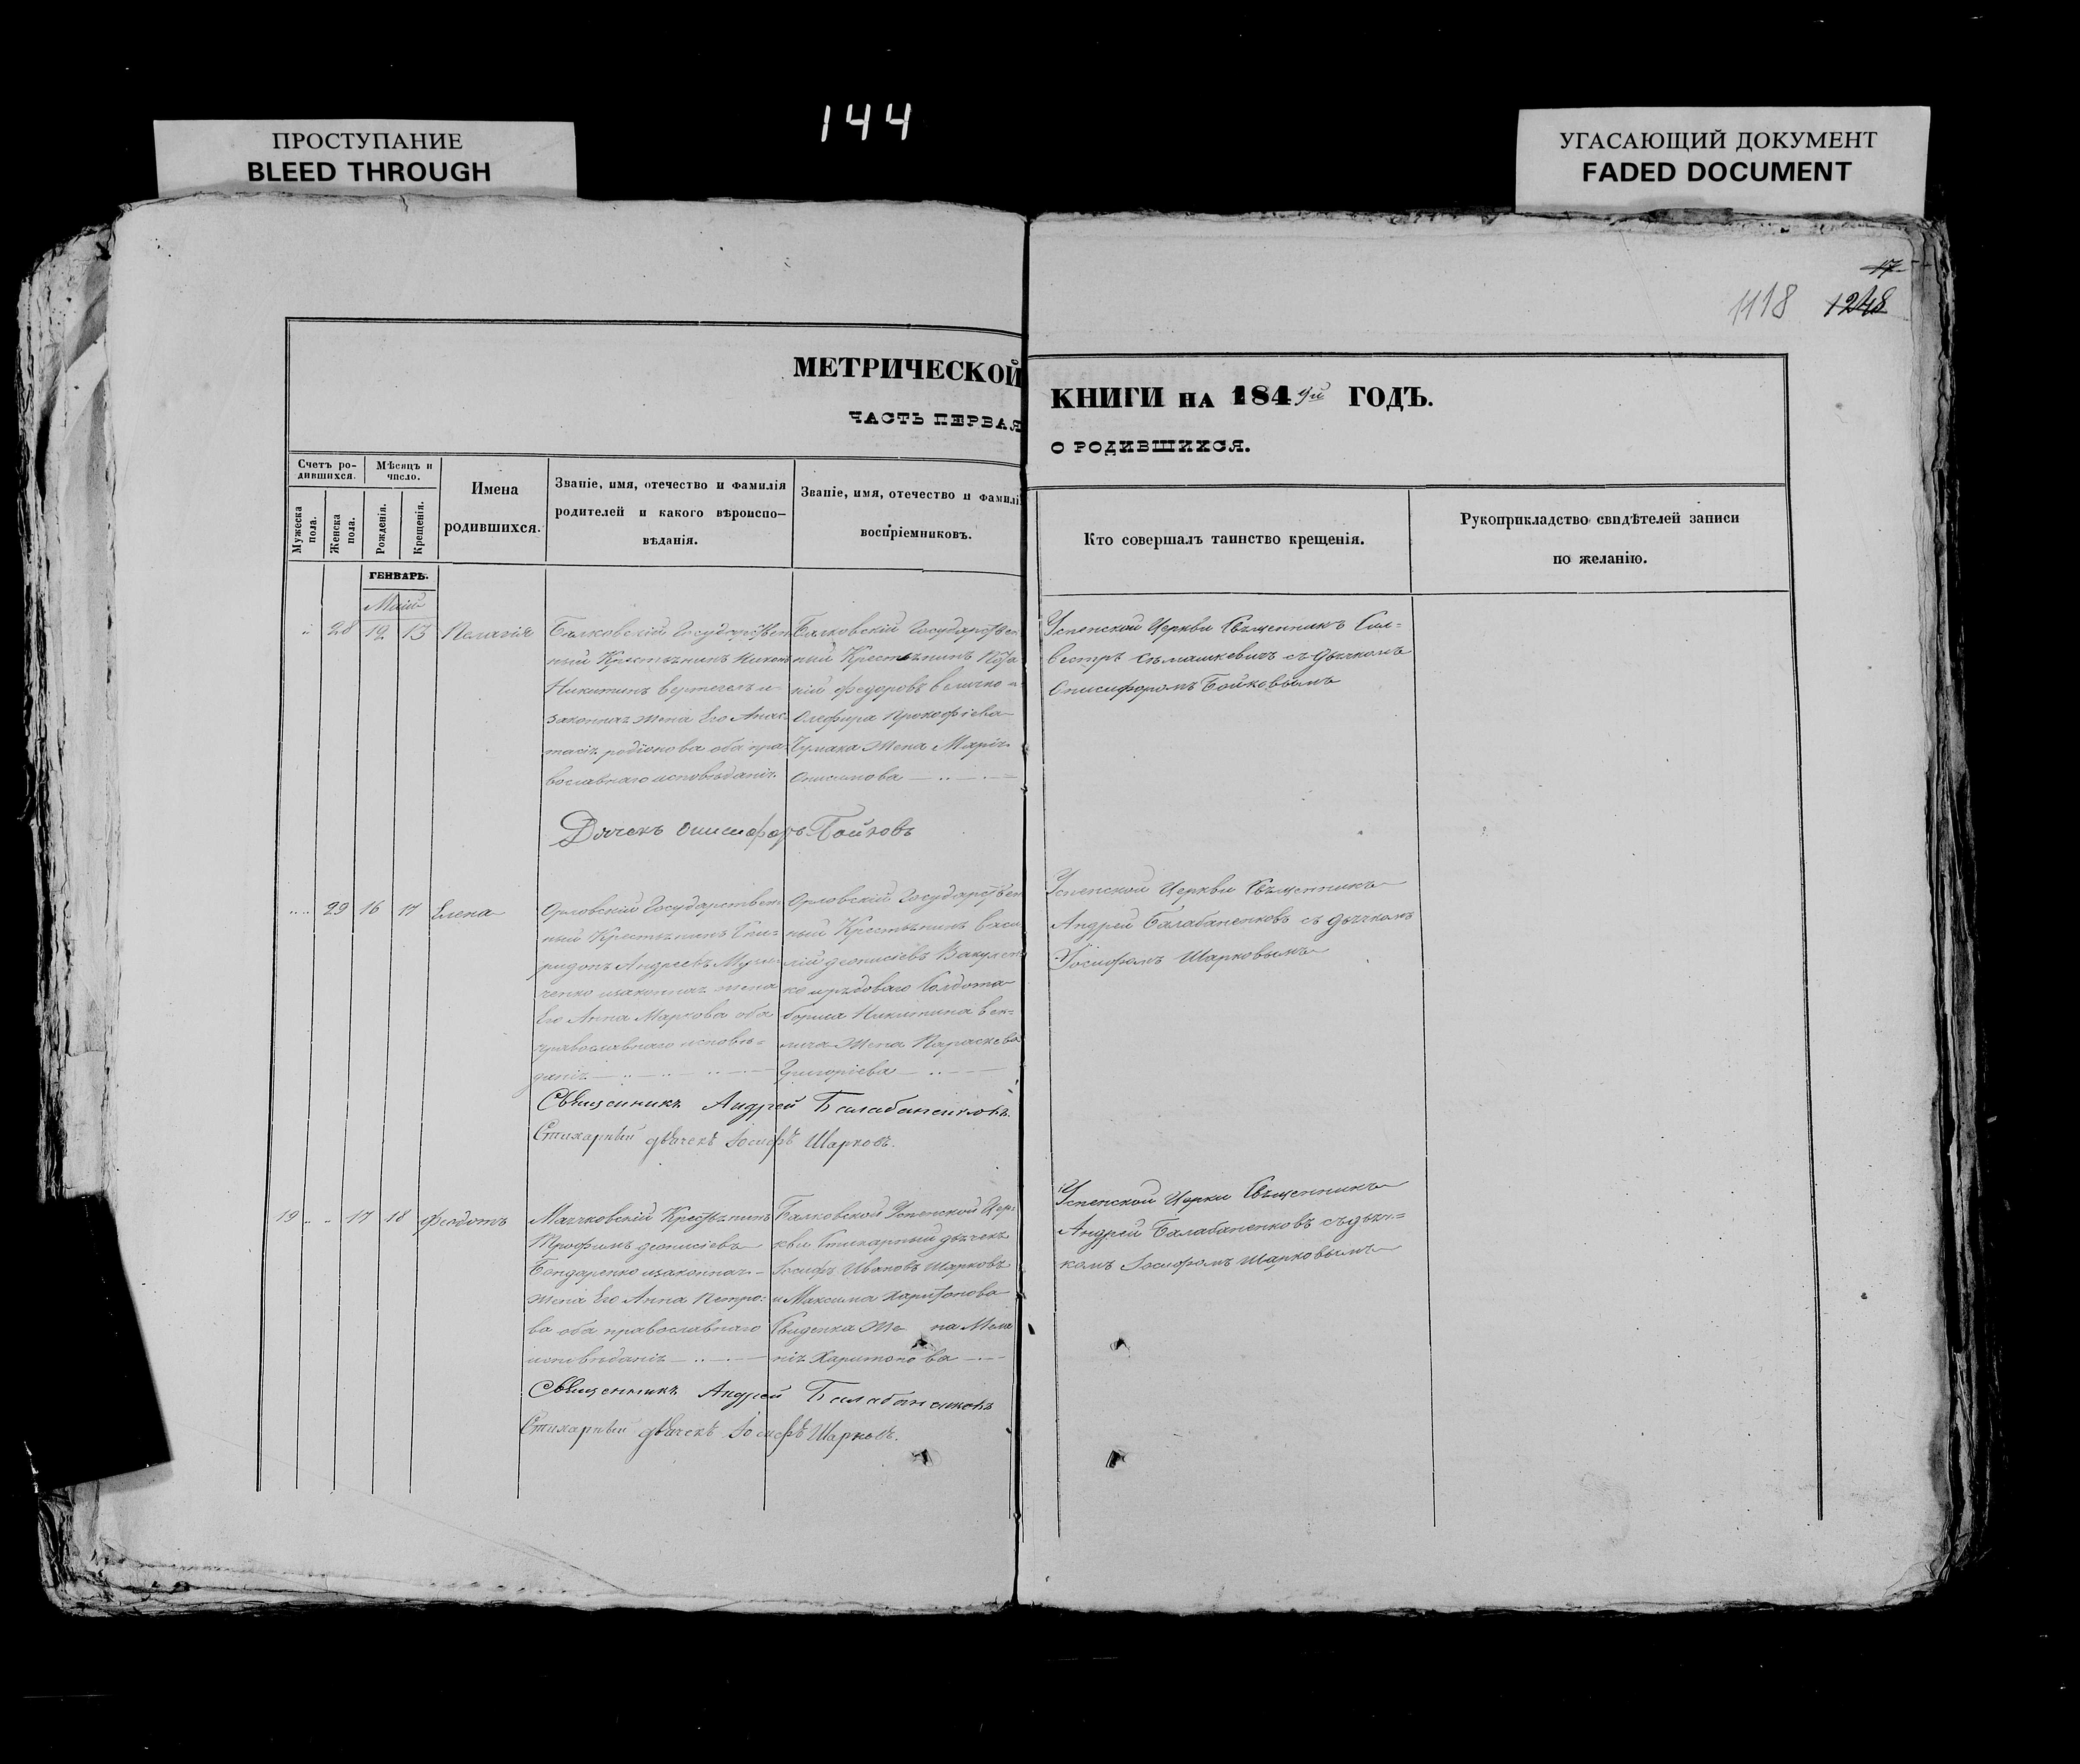 144
ПРОСТУПАНИЕ
BLEED THROUGH
УГАСАЮЩИЙ ДОКУМЕНТ
FADED DOCUMENT
17
1118 1248
МЕТРИЧЕСКОЙ КНИГИ НА 184 ГОДЪ.
ЧАСТЬ ПЕРВАЯ О РОДИВШИХСЯ.
Счетъ ро-
дившихся.
Мѣсяцъ и
число.
Мужеска
пола.
Женска
пола.
Рожденія.
Крещенія.
Имена
родившихся.
Званіе, имя, отечество и фамилія
родителей и какого вѣроиспо-
вѣданія.
Званіе, имя, отечество и фамилі
воспріемниковъ.
Кто совершалъ таинство крещенія.
Рукоприкладство свидѣтелей записи
по желанію.
ГЕНВАРЬ.
Маій
28 12 13 Пелагія
Балковскій Государствен
ный Крестьянинъ Никонъ
Никитинъ Вертегелъ и
законная жена Его Анас-
тасія родіонова оба пра-
вославнаго исповѣданія.
Балковскій Государствен
ный Крестьянинъ
кій Федоровъ Величко и
Олефира Прокофіева
Чумака жена Марія
Онисимова
Успенской Церкви Священникъ Сил-
вестръ Сѣмашкевичъ съ дьячкомъ
Онисифоромъ Бойковымъ
Дячекъ Онисифоръ Бойковъ
29 16 17 Елена
Орловскій Государствен-
ный Крестьянинъ Спи-
ридонъ Андреевъ
ченко изаконная жена
Его Анна Маркова оба
православнаго исповѣ-
данія
Орловскій Государствен
ный Крестьянинъ Васи
лій деонисіевъ Вакулен
ко ирядоваго Солдата
бориса Никитина
жена Параскева
Григоріева
Успенской Церкви Священникъ
Андрей Балабаненковъ съ дьячкомъ
Іосифомъ Шарковымъ
Священникъ Андрей Балабаненковъ
Стихарный дьячекъ Іосифъ Шарковъ.
19 17 18 Федотъ
Маячковскій Крестьянинъ
Трофимъ деонисіевъ
Бондаренко изаконная
жена Его Анна Петро-
ва оба православнаго
исповѣданія
Балковской Успенской Цер-
кви Стихарный дьячекъ
Іосифъ Ивановъ Шарковъ
и Максима Харитонова
Свиденка Же на Мела
нія Харитонова
Успенской Церки Священникъ
Андрей Балабаненковъ съ дьяч-
комъ Іосифомъ Шарковымъ
Священникъ Андрей Балабаненковъ
Стихарный дьячекъ Іосифъ Шарковъ.